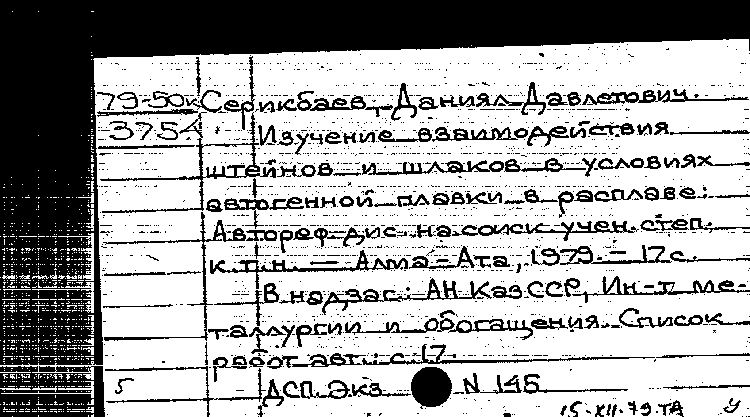 79-50к Серикбаев, Даниял Давлетович.
375А Изучение взаимодействия
штейнов и шлаков в условиях
автогенной плавки в расплаве:
Автореф дис. на соиск учен. степ.
к.т.н. — Алма-Ата, 1979. — 17 с.
В надзаг.: АН КазССР, Ин-т ме-
таллургии и обогащения. Список
работ авт.: с. 17.
5 ДСП. Экз. N 145
15.XII.79 ТА